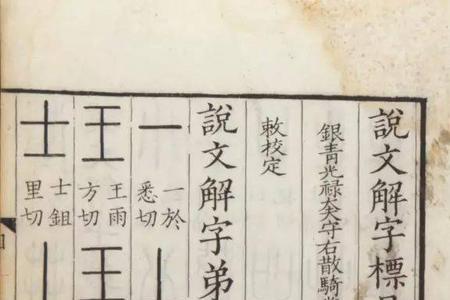 說文解字標
銀青光禄大夫守右散騎
敕校定
說文解字弟
一 一於悉切
王 王雨方切
士 士鉏里切